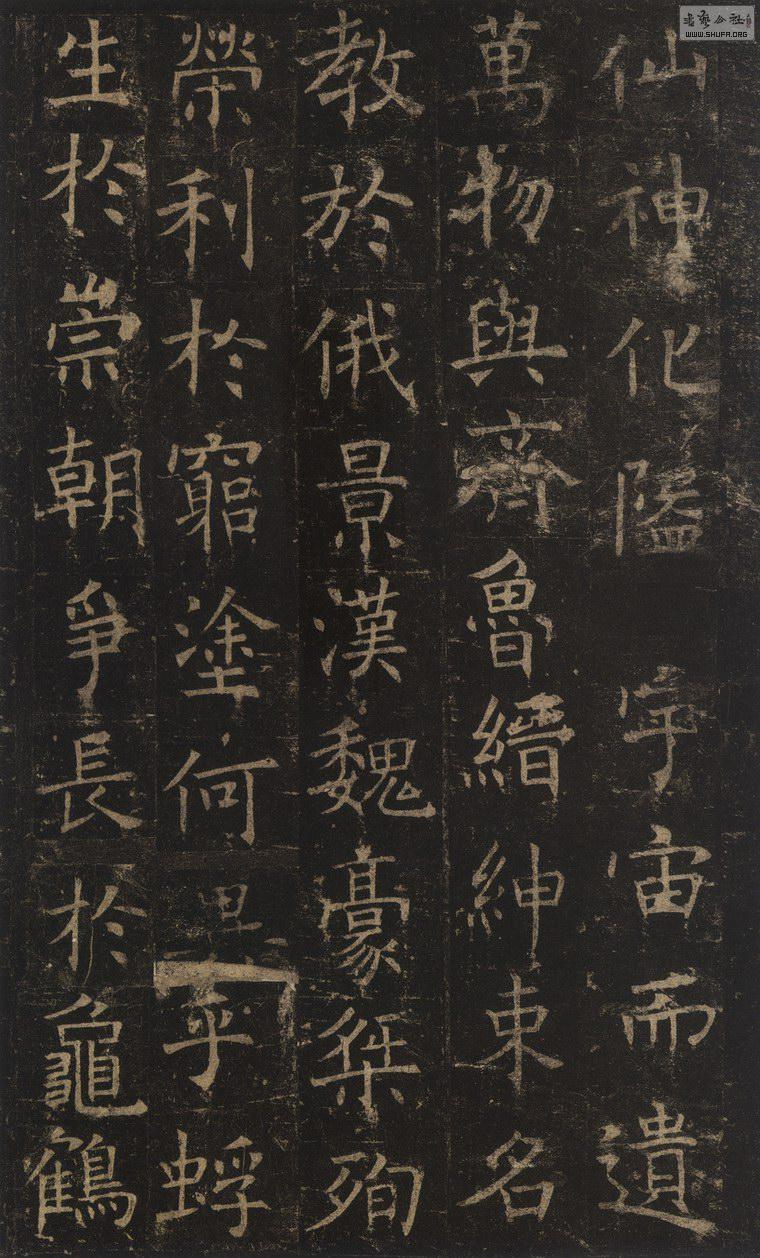 仙神化隘 宇宙而遺
萬物與齊魯縉紳束名
教於俄景漢魏豪桀殉
榮利於窮塗何異乎蜉
生於崇朝爭長於龜鶴
书艺公社
WWW.SHUFA.ORG